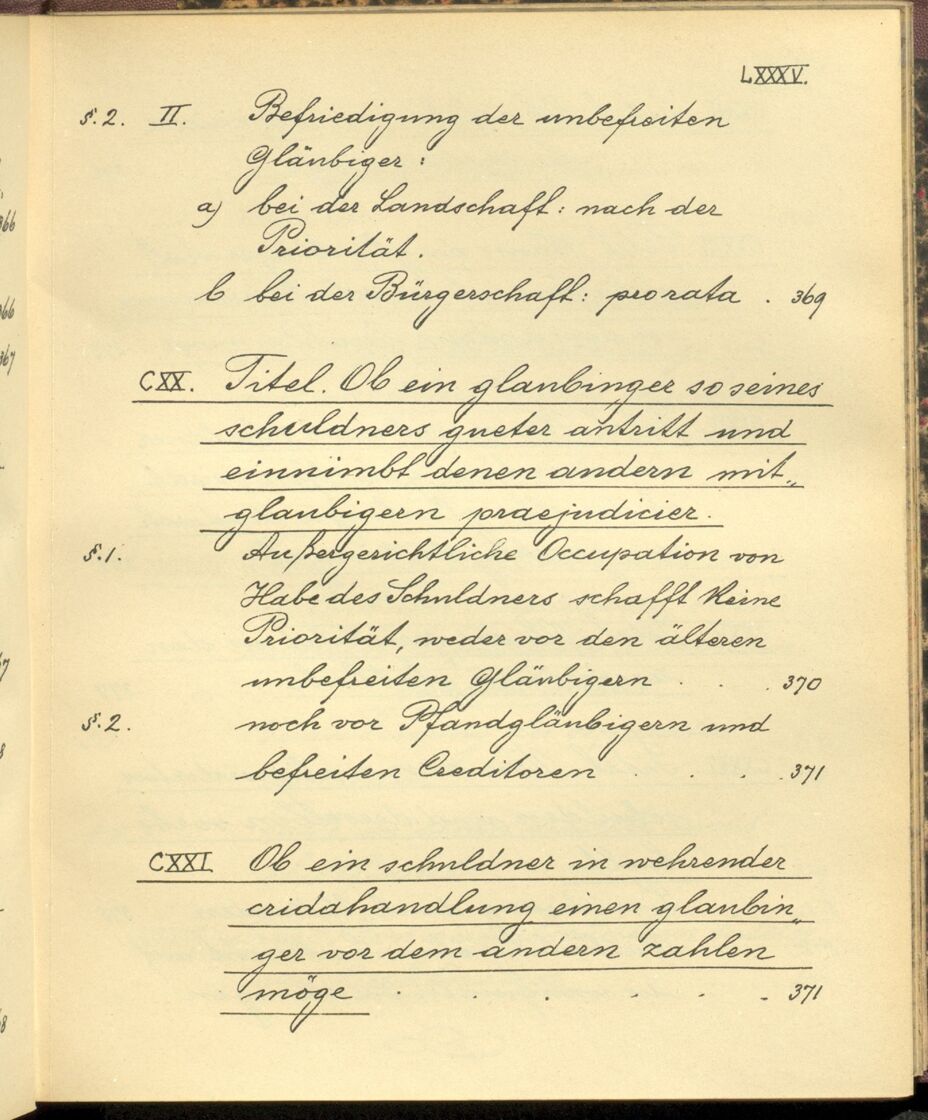 LXXXV.
§. 2. II. Befriedigung der unbefreiten
Gläubiger:
a) bei der Landschaft: nach der
Priorität.
b bei der Bürgerschaft: pro rata . 369
CXX. Titel. Ob ein glaubinger so seines
schuldners gueter antritt und
einnimbt denen andern mit„
glaubigern praejudicier.
§. 1. Außergerichtliche Occupation von
Habe des Schuldners schafft keine
Priorität, weder vor den älteren
unbefreiten Gläubigern . . . 370
§. 2. noch vor Pfandgläubigern und
befreiten Creditoren . . . . 371
CXXI Ob ein schuldner in wehrender
cridahandlung einen glaubin„
ger vor dem andern zahlen
möge . . . . . . 371
366
366
367